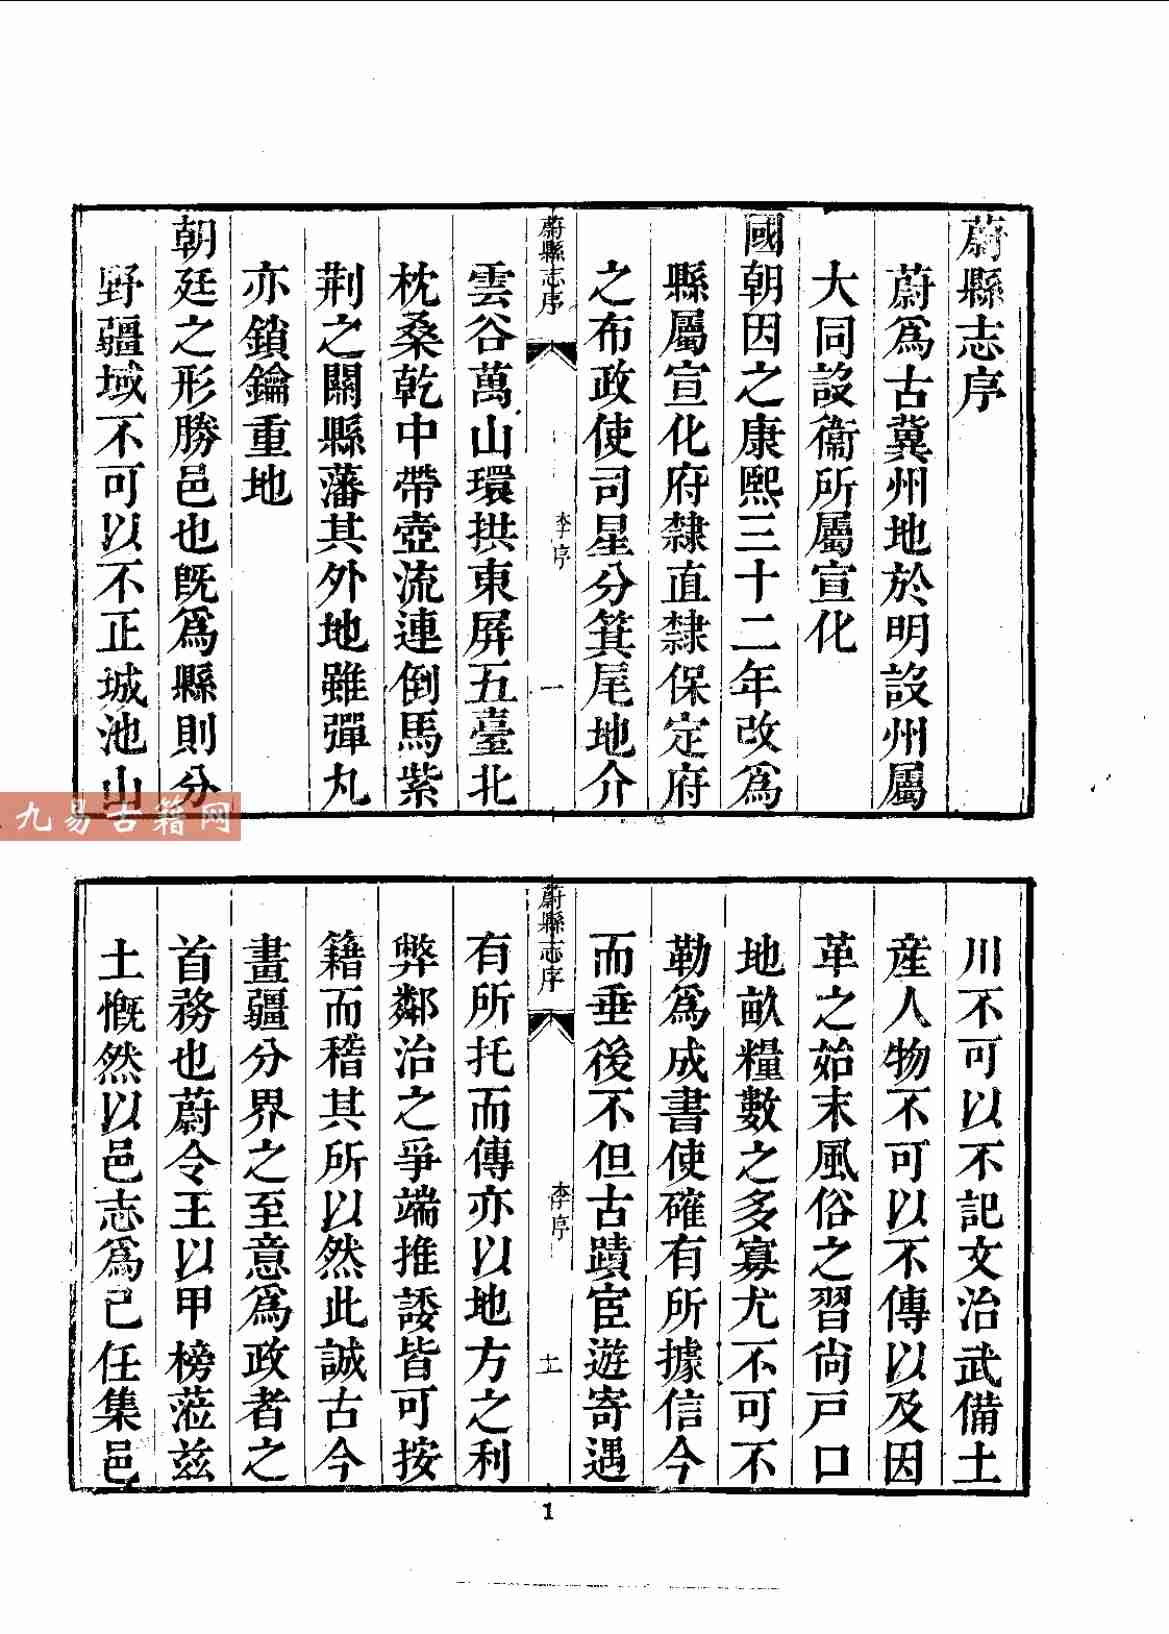 蔚縣志序
蔚爲古冀州地於明設州屬
大同設衞所屬宣化
國朝因之康熙三十二年改爲
縣屬宣化府隸直隸保定府
之布政使司星分箕尾地介
蔚縣志序 李序 一
雲谷萬山環拱東屛五臺北
枕桑乾中帶壺流連倒馬紫
荆之關縣藩其外地雖彈丸
亦鎖鑰重地
朝廷之形勝邑也旣爲縣則分
野疆域不可以不正城池山
川不可以不記文治武備土
産人物不可以不傳以及因
革之始末風俗之習尙戸口
地畝糧數之多寡尤不可不
勒爲成書使確有所據信今
而垂後不但古蹟宦遊寄遇
蔚縣志序 李序
有所托而傳亦以地方之利
弊鄰治之爭端推諉皆可按
籍而稽其所以然此誠古今
畫疆分界之至意爲政者之
首務也蔚令王以甲榜蒞兹
土慨然以邑志爲己任集邑
1
九易古籍网